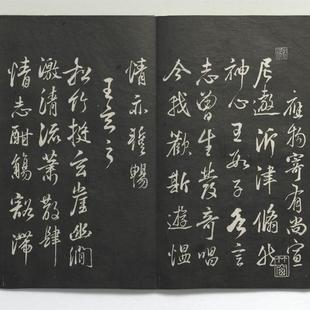 應物寄有尚宣
尼遨沂津翛然
神心王數子各言
志曾生發奇唱
今我歡斯遊慍
情亦蹔暢
王玄之
松竹挺崖幽澗
激清流蕭散肆
情志酣觴豁滯